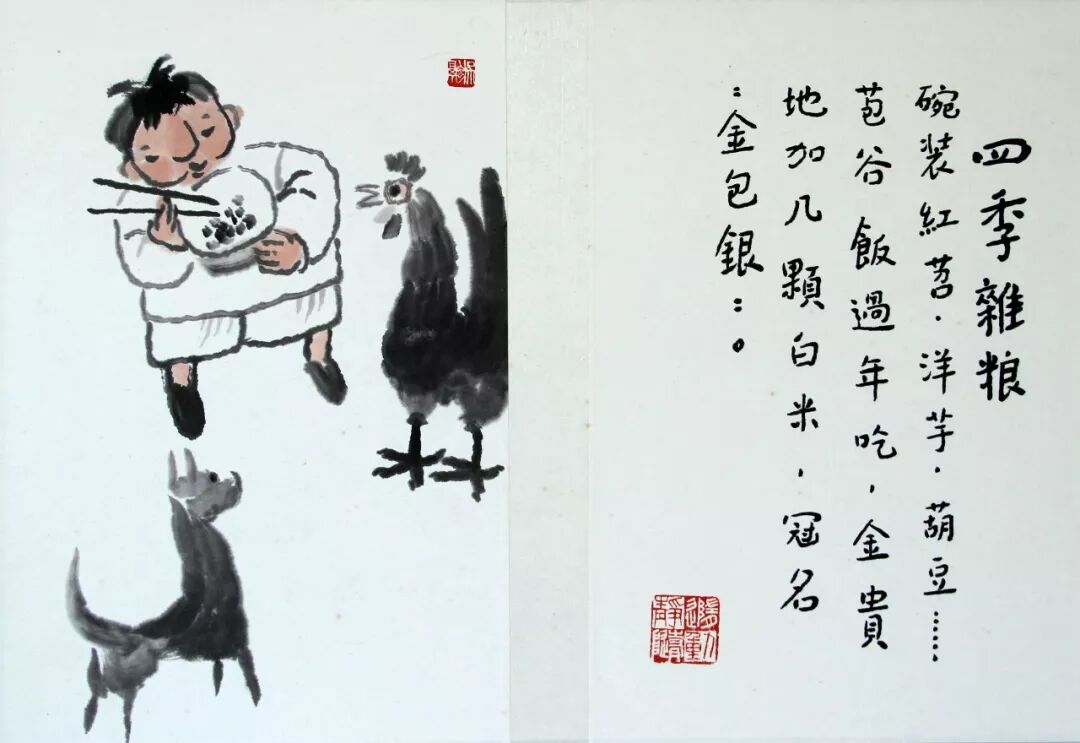 四季雜粮
碗装紅苕.洋芋.葫豆……
苞谷飯過年吃，金貴
地加几顆白米，冠名
：金包銀：。